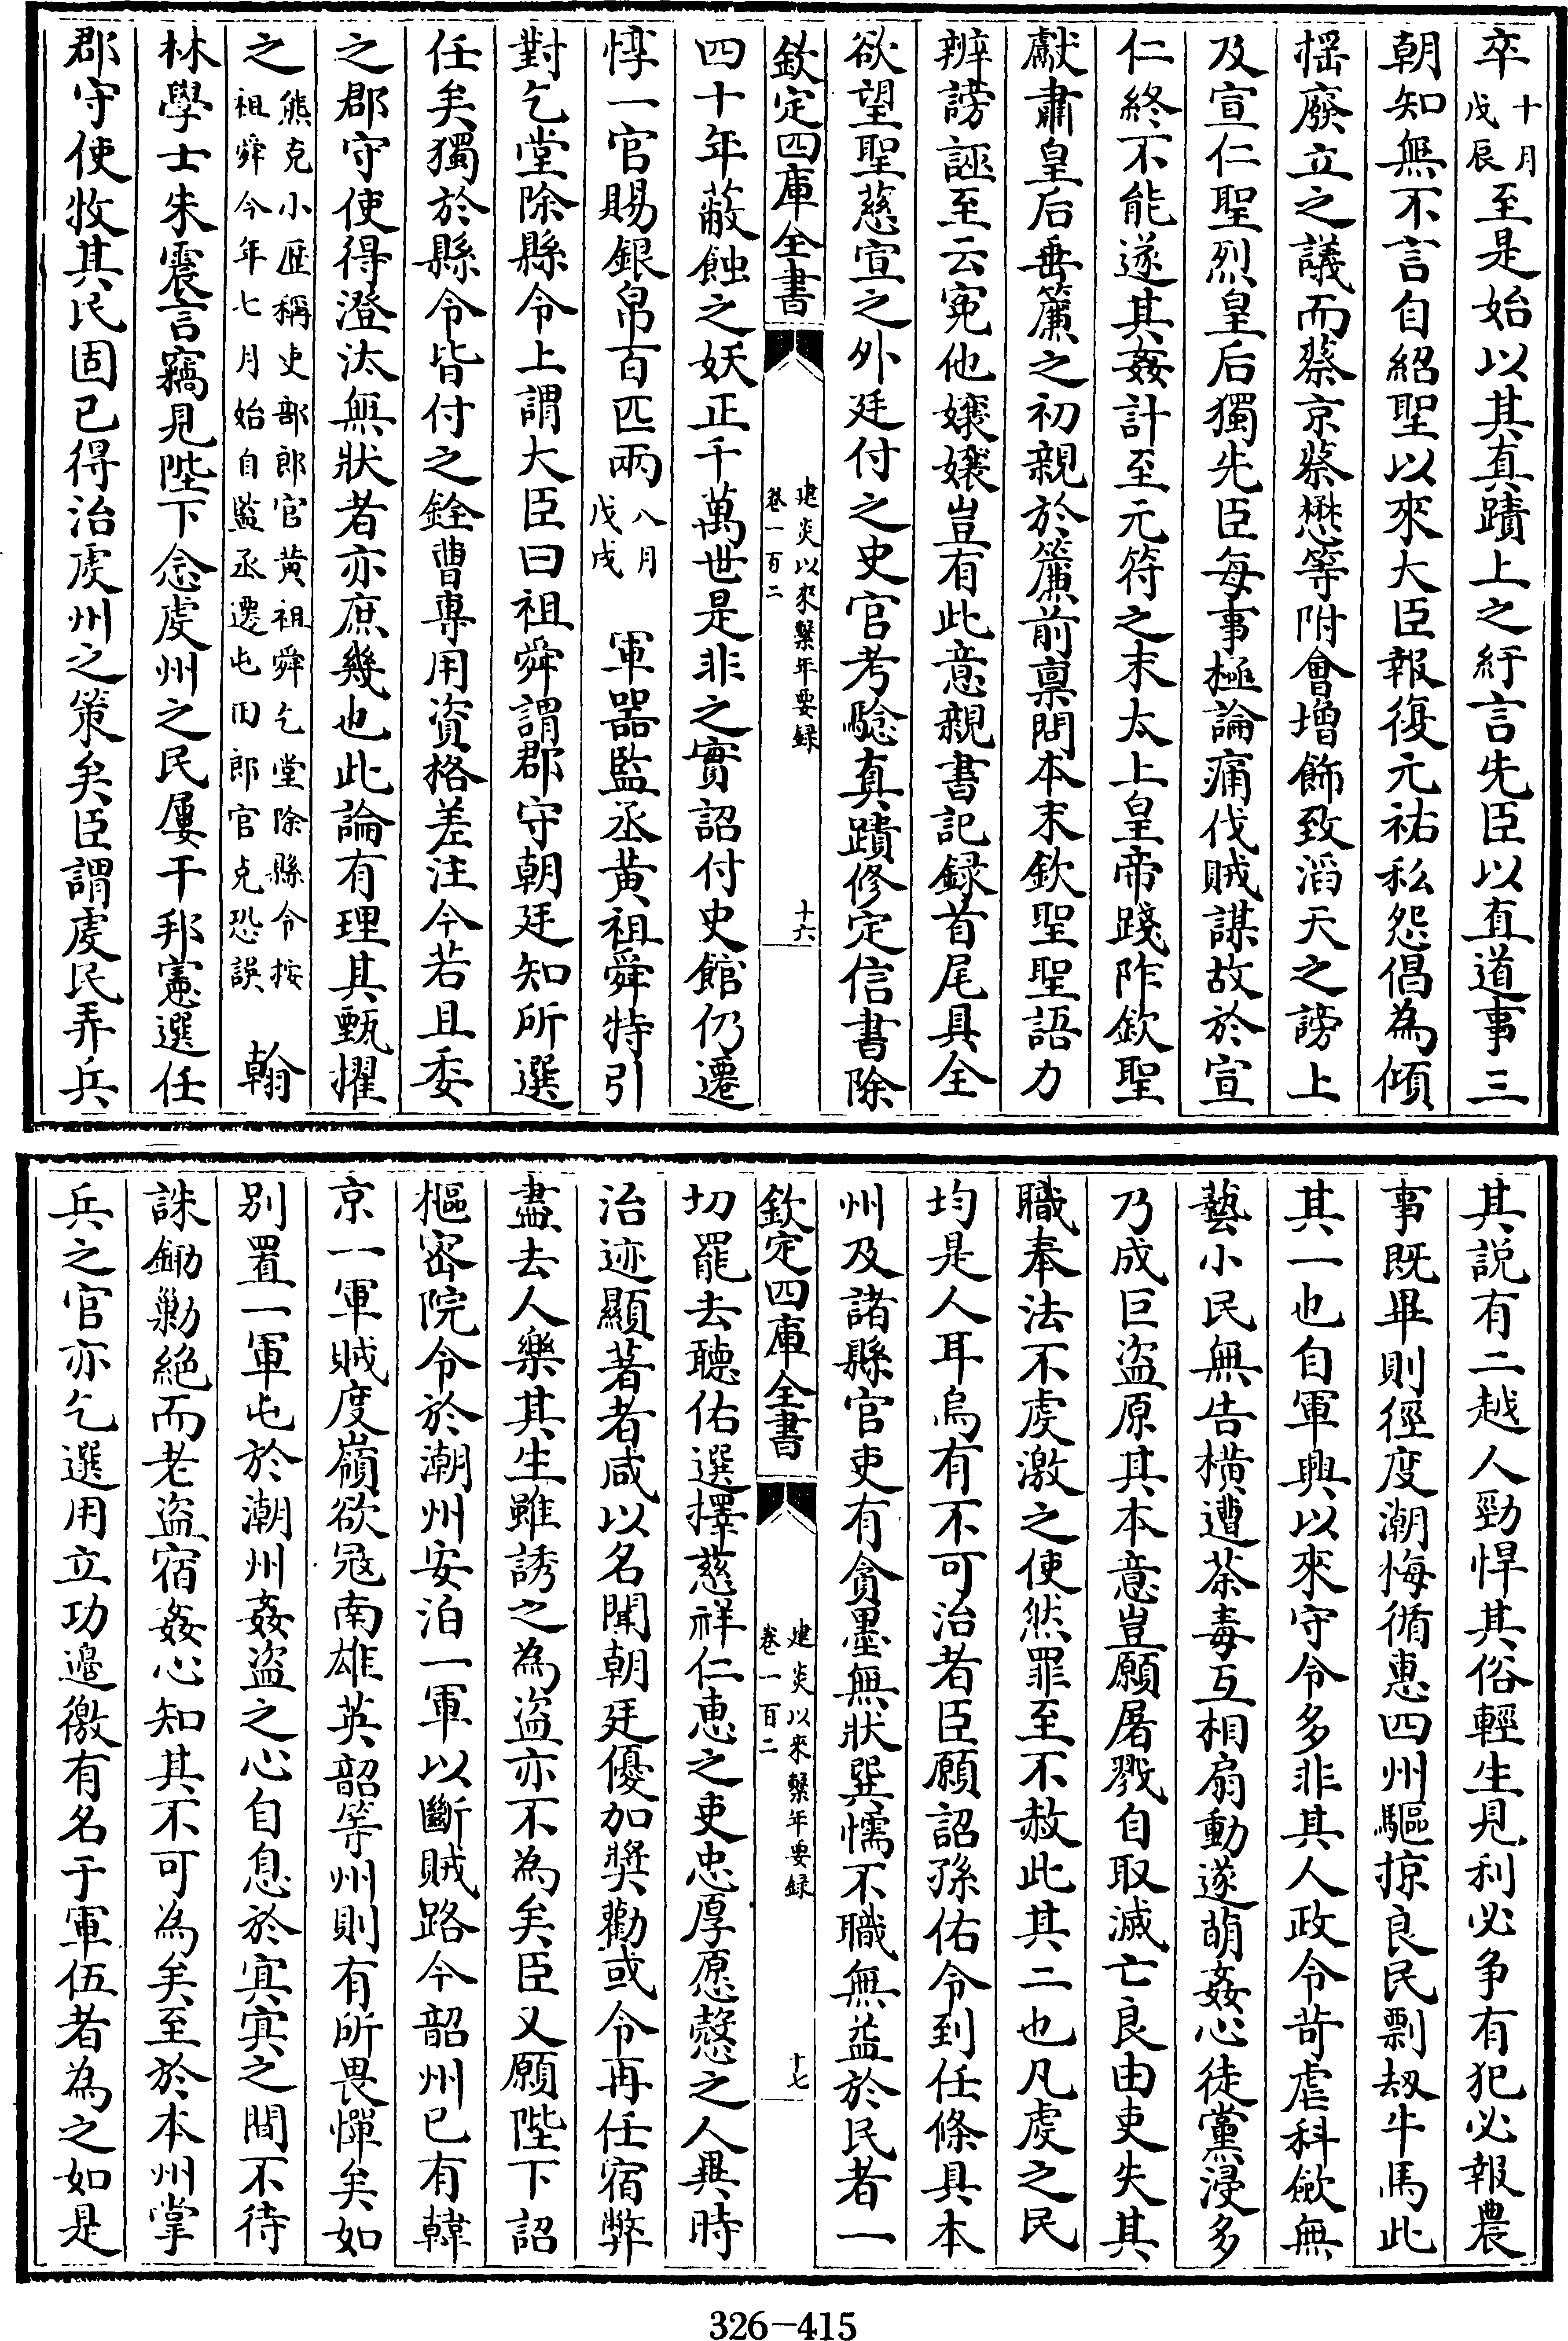 卒十月戊辰至是始以其真蹟上之紆言先臣以直道事三
朝知無不言自紹聖以來大臣報復元祐私怨倡為傾
揺廢立之議而蔡京蔡懋等附會增飾致滔天之謗上
及宣仁聖烈皇后獨先臣每事極論痛伐賊謀故於宣
仁終不能遂其姦計至元符之末太上皇帝踐阼欽聖
獻肅皇后垂簾之初親於簾前禀問本末欽聖聖語力
辨謗誣至云寃他孃孃豈有此意親書記録首尾具全
欲望聖慈宣之外廷付之史官考驗真蹟修定信書除
欽定四庫全書
建炎以來繫年要録
卷一百二
十六
四十年蔽蝕之妖正千萬世是非之實詔付史館仍遷
惇一官賜銀帛百匹兩八月戊戌 軍器監丞黄祖舜特引
對乞堂除縣令上謂大臣曰祖舜謂郡守朝廷知所選
任矣獨於縣令皆付之銓曹專用資格差注今若且委
之郡守使得澄汰無狀者亦庶幾也此論有理其甄擢
之熊克小歴稱吏部郎官黄祖舜乞堂除縣令按祖舜今年七月始自監丞遷屯田郎官克恐誤 翰
林學士朱震言竊見陛下念䖍州之民屢干邦憲選任
郡守使牧其民固已得治䖍州之策矣臣謂䖍民弄兵
其説有二越人勁悍其俗輕生見利必争有犯必報農
事既畢則徑度潮梅循惠四州驅掠良民剽刼牛馬此
其一也自軍興以來守令多非其人政令苛虐科歛無
藝小民無告横遭荼毒互相扇動遂萌姦心徒黨浸多
乃成巨盜原其本意豈願屠戮自取滅亡良由吏失其
職奉法不䖍激之使然罪至不赦此其二也凡䖍之民
均是人耳烏有不可治者臣願詔孫佑令到任條具本
州及諸縣官吏有貪墨無狀巽懦不職無益於民者一
欽定四庫全書
建炎以來繫年要録
卷一百二
十七
切罷去聽佑選擇慈祥仁恵之吏忠厚愿慤之人異時
治迹顯著者咸以名聞朝廷優加奬勸或令再任宿弊
盡去人樂其生雖誘之為盜亦不為矣臣又願陛下詔
樞宻院令於潮州安泊一軍以斷賊路今韶州已有韓
京一軍賊度嶺欲冦南雄英韶等州則有所畏憚矣如
别置一軍屯於潮州姦盜之心自息於㝠㝠之間不待
誅鋤勦絶而老盜宿姦心知其不可為矣至於本州掌
兵之官亦乞選用立功邉徼有名于軍伍者為之如是
326-415